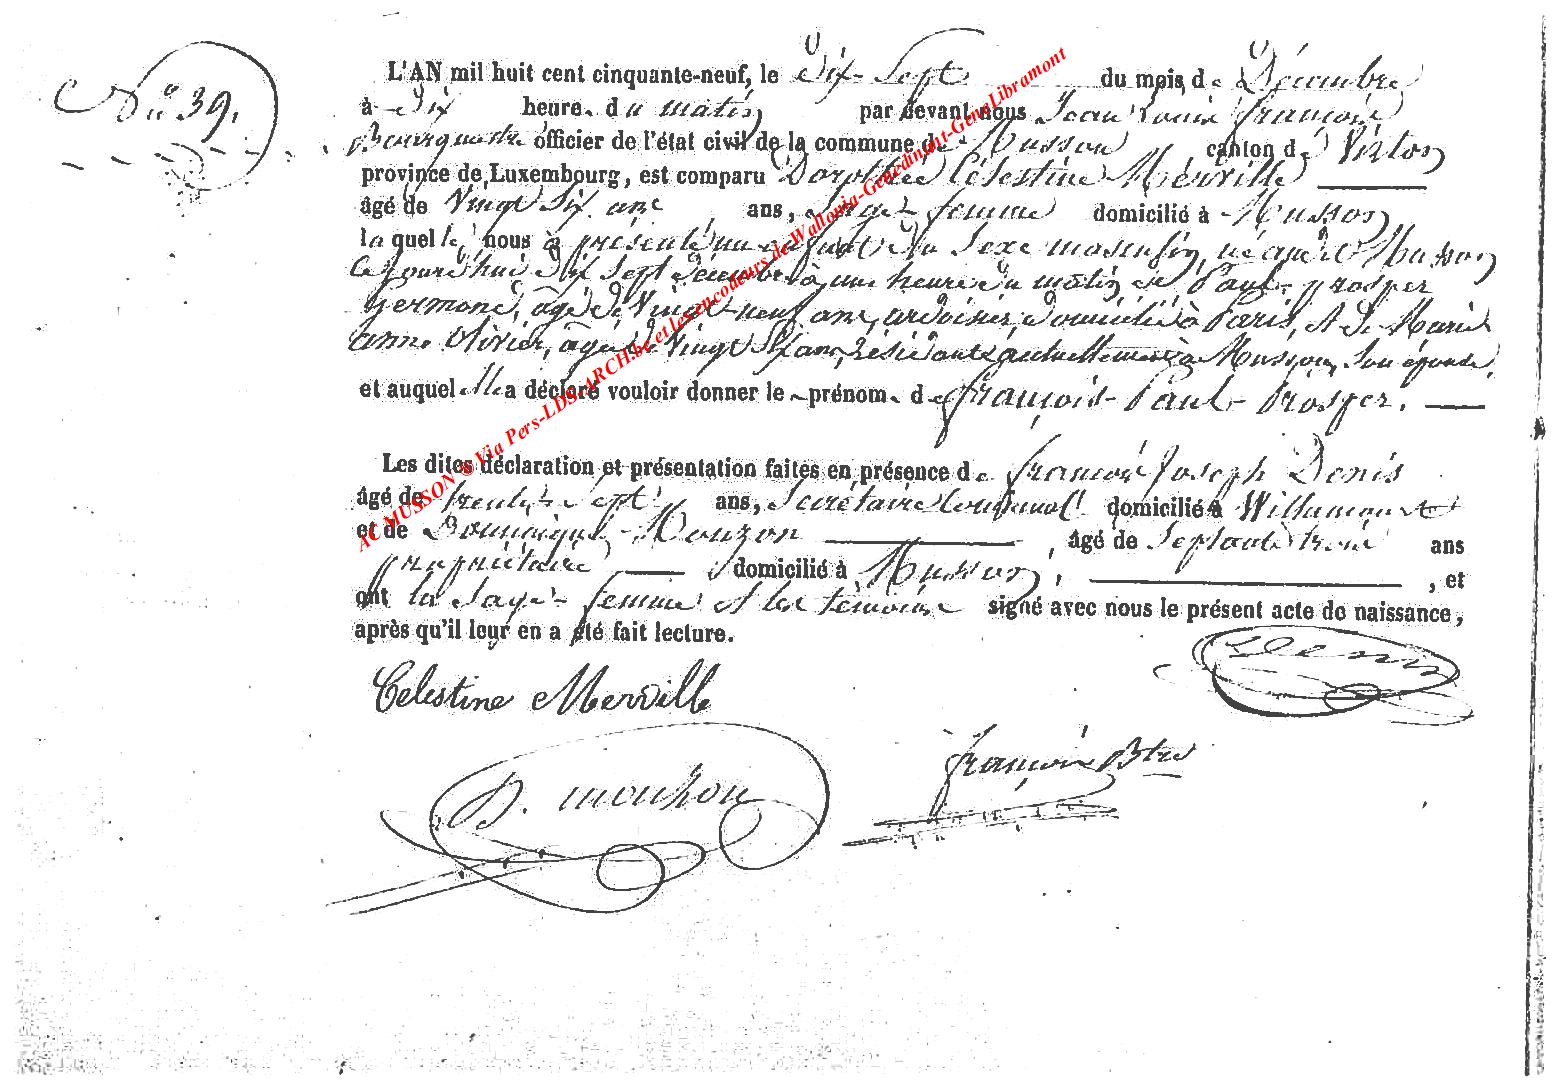 No 39.
L'AN mil huit cent cinquante-neuf, le Dix-Sept du mois de Décembre
à Dix heures du matin par devant nous Jean Louis François
Bourgmestre officier de l'état civil de la commune de Musson canton de Virton
province de Luxembourg, est comparu Dorothée Célestine Merville
âgé de Vingt Six ans ans, Sage-femme domicilié à Musson
laquelle nous à présenté un enfant du Sexe masculin, né à Musson
ce jourd'hui dix Sept Décembre à une heure du matin de Paul-prosper
germone, âgé de Vingt-neuf ans, ardoisier domicilié à Paris, et de Marie
anne Olivier, âgée de Vingt Six ans, résidante actuellement à Musson, Son épouse,
et auquel elle a déclaré vouloir donner le prénom de françois-Paul-Prosper.
Les dites déclaration et présentation faites en présence de françois Joseph Denis
âgé de trente-Sept ans, Secrétaire communal domicilié à Willancourt
et de Dominique Mouzon, âgé de Septante trois ans
propriétaire domicilié à Musson, , et
ont la Sage-femme et les témoins signé avec nous le présent acte de naissance,
après qu'il leur en a été fait lecture.
Denis
Celestine Merville
françois Btre
D. mouzon
AC MUSSON ® Via Pers-LDS-ARCH.be et les encodeurs de Wallonia-Genedinant-GeneLibramont